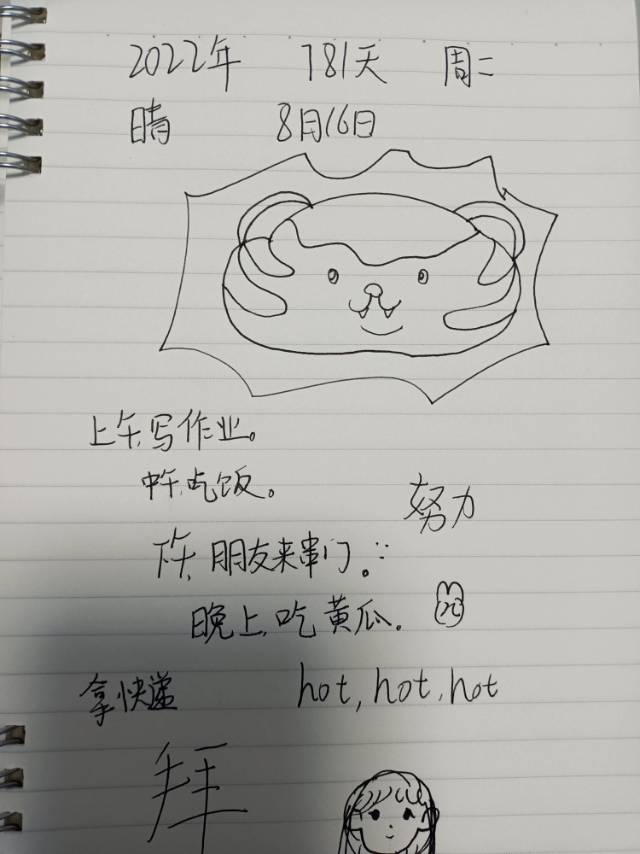 2022年 781天 周二
晴 8月16日
上午写作业。
中午吃饭。
努力
下午 朋友来串门。
晚上吃黄瓜.
拿快递 hot, hot, hot
拜